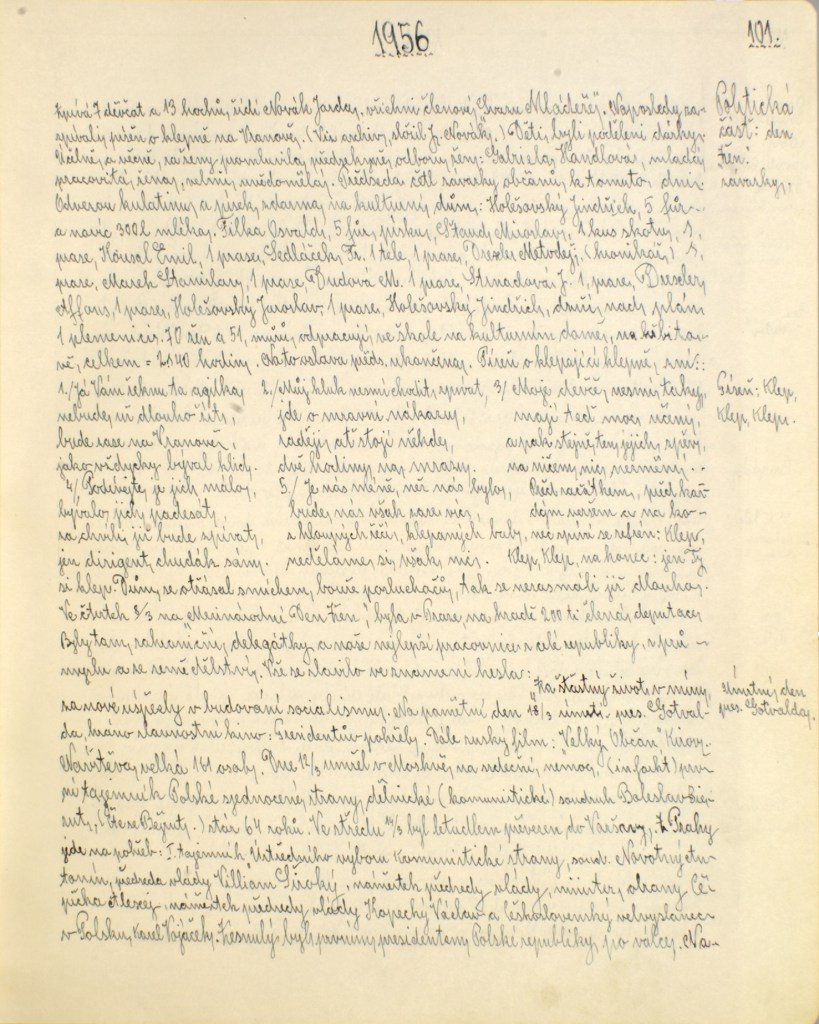 1956
101.
zpívá 7 děvčat a 13 hochů, řídí Novák Jarda, všichni členové Svazu Mládeže". Naposledy za-
zpívali píseň o klepně na Vranově. (Viz archiv, složil J. Novák.) Děti byli poděleni dárky.
Vážně, a věcně, za ženy promluvila předsedkyně odboru žen: Gabriela Handlová, mladá,
pracovitá, žena, velmi uvědomělá. Předseda četl závazky občanů, k tomuto dni:
Odvezou kulatinu a písek zdarma na kulturní dům: Holešovský Jindřich, 5 fůr
a navíc 300 l mléka. Filka Osvald, 5 fůr písku, Staud Miroslav, 1 kus skotu, 1,
prase, Housal Emil, 1 prase, Sedláček Fr. 1 tele, 1 prase, Drexler Metoděj, (kronikář) 1,
prase, Marek Stanislav, 1 prase, Dudová M. 1 prase, Strnadová J. 1, prase, Drexler
Alfons, 1 prase, Holešovský Jaroslav, 1 prase, Holešovský Jindřich, druhý, nad plán
1 plemenici. 70 žen a 51, mužů, odpracují, ve škole na kulturním domě, na hřbito-
vě, celkem = 2140 hodin. Na to oslava předs. ukončena. Píseň o klepající klepně, zní:
Politická
část: den
Žen:
závazky.
1./ Já Vám řeknu ta agilka,
nebude už dlouho žít,
bude zase na Vranově,
jako vždycky býval klid.
2./ Můj kluk nesmí chodit zpívat,
jde o mravní nákazu,
raději, ať stojí někde,
dvě hodiny na mrazu.
3/ Moje děvče, nesmí taky,
mají teď moc učení,
a pak stejně ten jejich zpěv,
na ničem nic nezmění.
Píseň: Klep,
Klep, Klep.
4/ Podívejte, je jich málo,
bývalo jich padesát,
za chvíli, již bude zpívat,
jen dirigent, chudák sám.
5./ Je nás méně, než nás bylo,
bude nás však zase víc,
z hloupých řečí, klepaných bab,
neděláme si, však, nic.
Před začátkem, před kaž-
dým veršem a na ko-
nec zpívá se refrén: Klep,
Klep, Klep, na konec: jen Ty
si klep. Dům, se otřásal smíchem, bouře posluchačů, tak se nezasmáli již dlouho.
Ve čtvrtek 8/3 na „Mezinárodní Den Žen", byla v Praze, na hradě 200 ti členná, deputace
Byly tam, zahraniční, delegátky a naše nejlepší pracovnice z celé republiky, z prů-
myslu a ze zemědělství. Vše se slavilo ve znamení hesla: „Za šťastný život v míru,
za nové úspěchy v budování socialismu. Na památní den 18/3 úmrtí pres. Gotval-
da, hráno slavnostní kino: Presidentův pohřeb. Dále ruský film: „Velký Občan" Kirov.
Úmrtní den
pres. Gotvalda.
Návštěva, velká 161 osob. Dne 12/3 umřel v Moskvě, na srdeční, nemoc, (infarkt) prv-
ní tajemník Polské sjednocené, strany, dělnické (komunistické) soudruh Boleslav Bie-
rut, (čte se Bějrut.) stár 64 roků. Ve středu 14/3 byl letadlem převezen do Varšavy. Z Prahy
jede na pohřeb: I. tajemník Ústředního výboru Komunistické strany, soud. Novotný An-
tonín, předseda vlády Villiám Široký, náměstek předsedy vlády, minister, obrany Če-
pička Alexej, náměstek předsedy vlády Kopecký Václav a československý velvyslanec
v Polsku, Karel Vojáček. Zesnulý, byl prvním, presidentem, Polské republiky, po válce. Na-